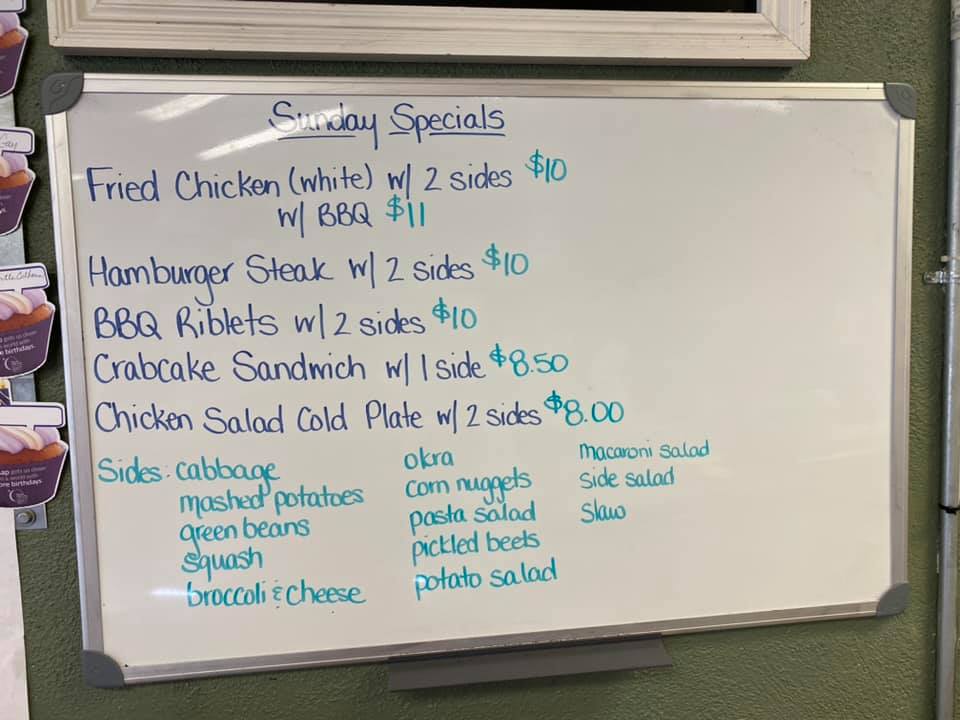 Sunday Specials
Fried Chicken (white) w/ 2 sides $10
w/ BBQ $11
Hamburger Steak w/ 2 sides $10
BBQ Riblets w/ 2 sides $10
Crabcake Sandwich w/ 1 side $8.50
Chicken Salad Cold Plate w/ 2 sides $8.00
Sides: cabbage
mashed potatoes
green beans
squash
broccoli & cheese
okra
corn nuggets
pasta salad
pickled beets
potato salad
macaroni salad
side salad
Slaw